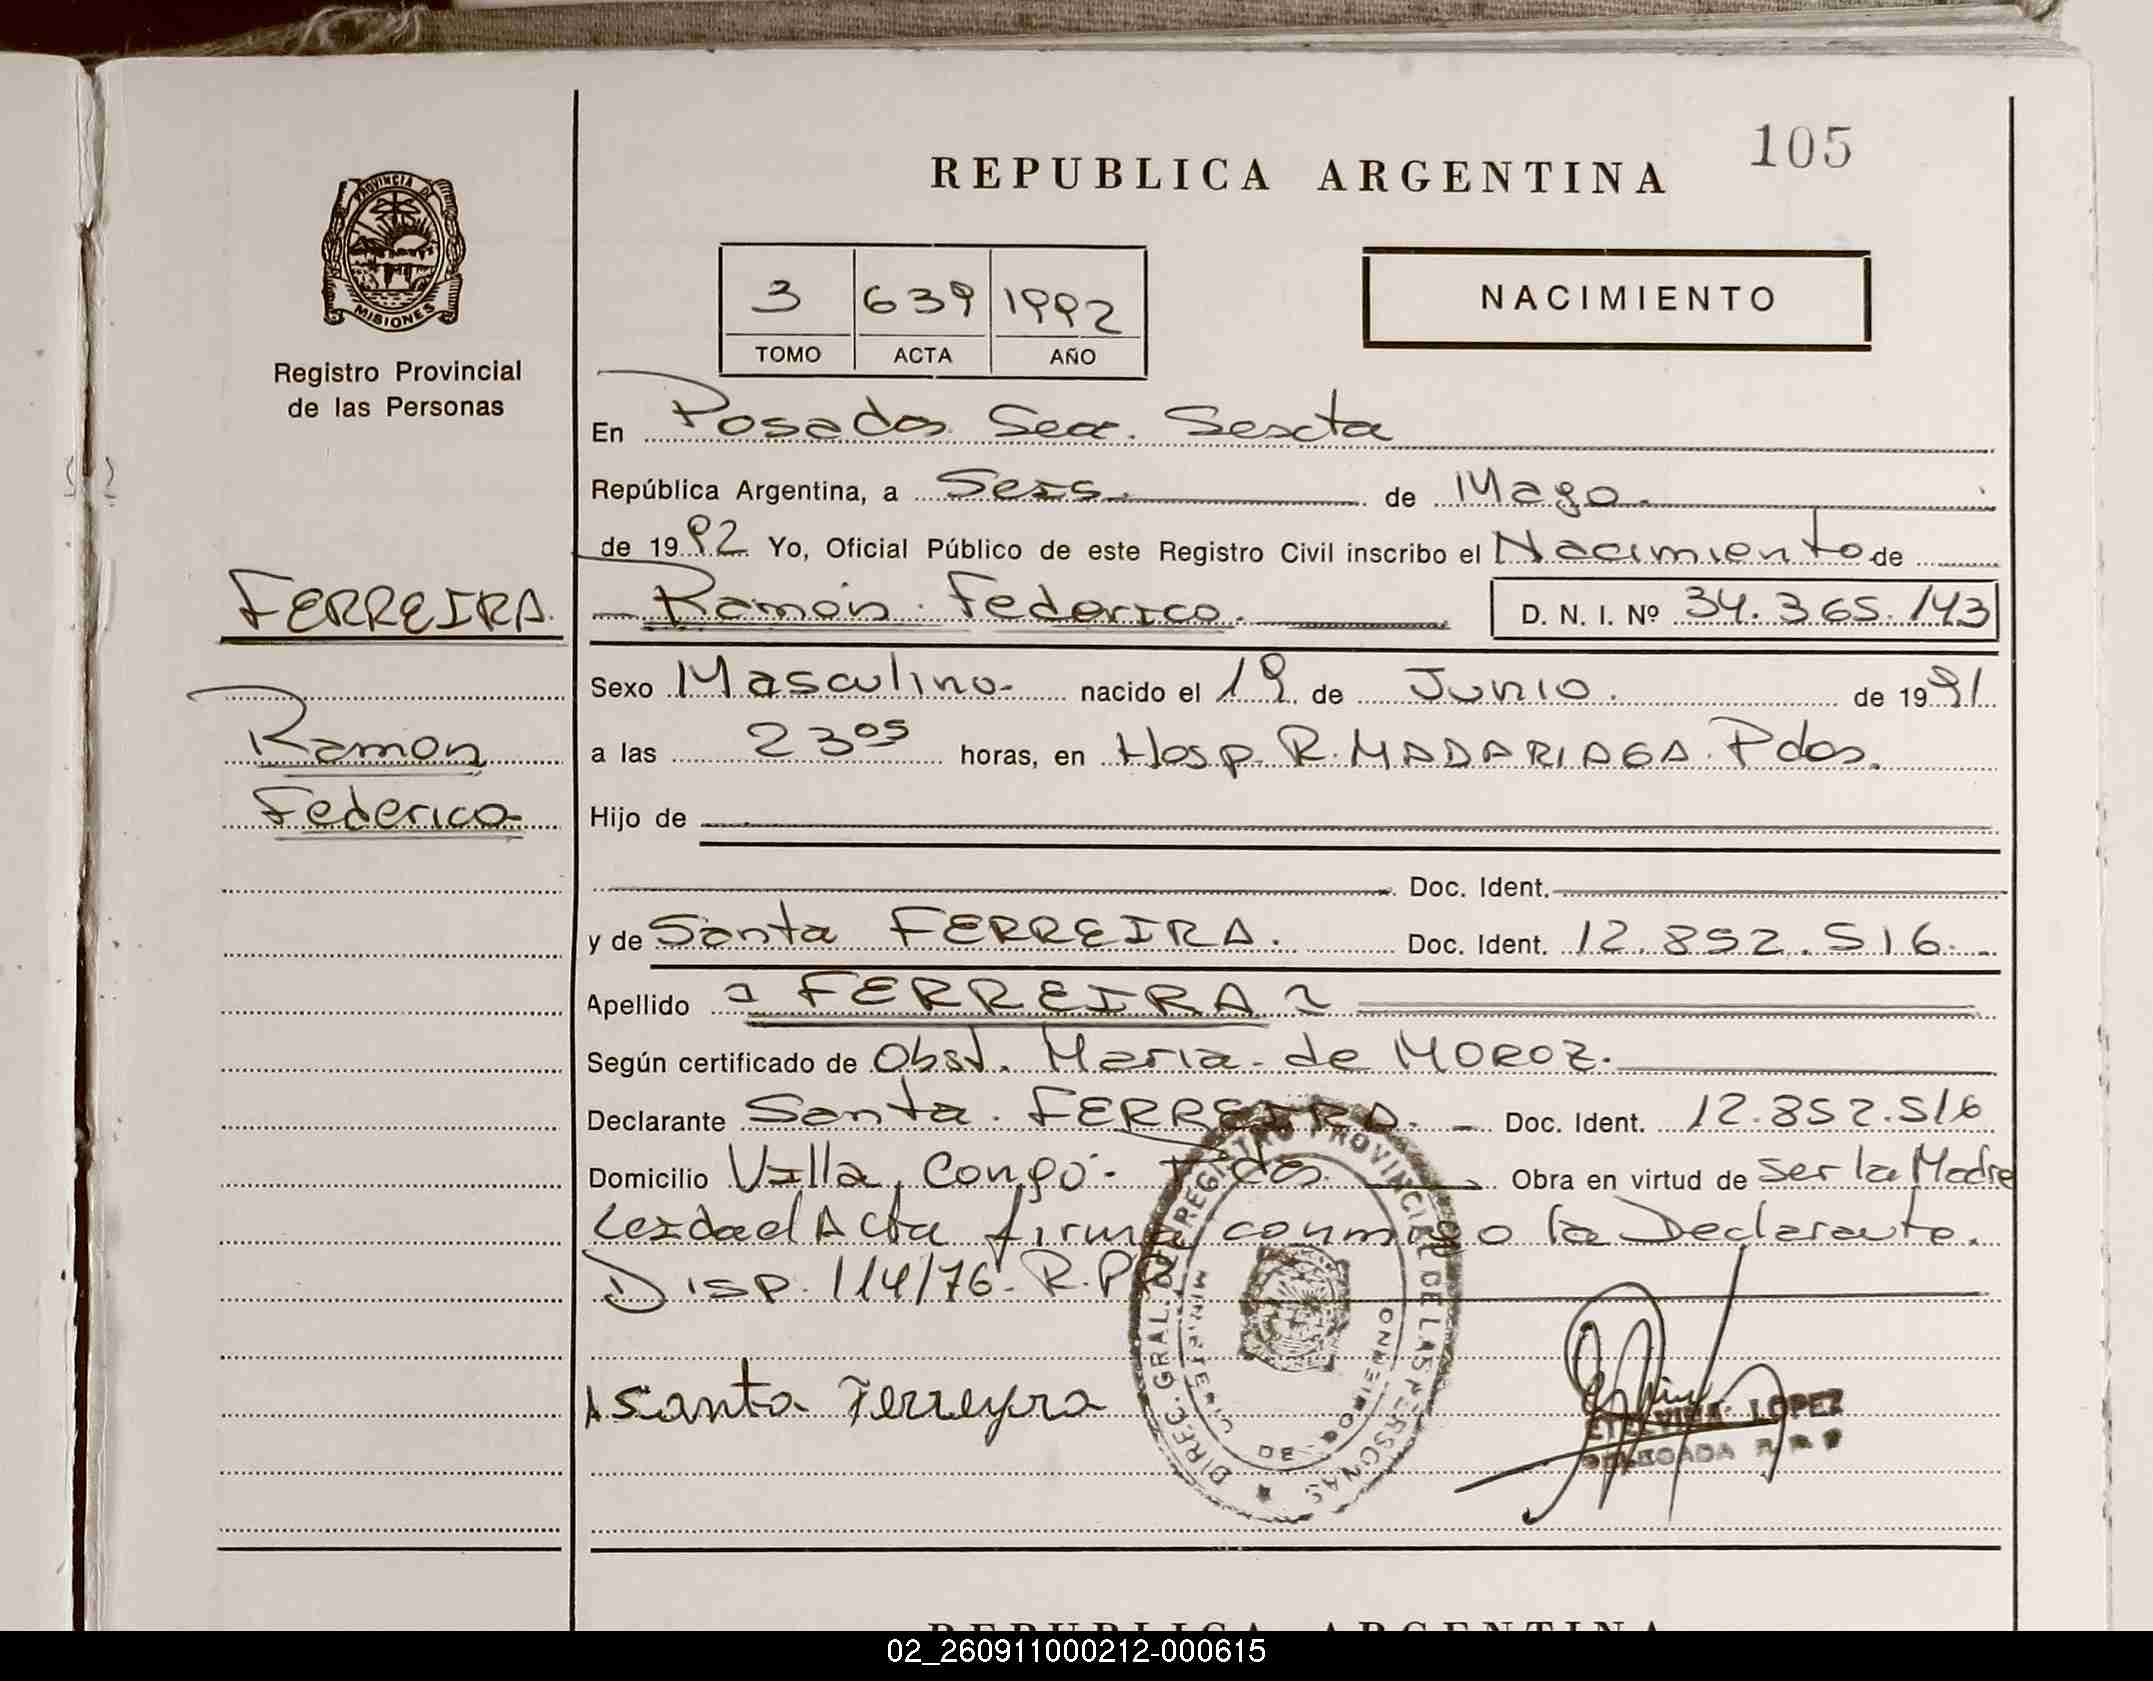 105
REPUBLICA ARGENTINA
PROVINCIA DE
MISIONES
Registro Provincial
de las Personas
3 639 1992
TOMO ACTA AÑO
NACIMIENTO
En Posadas Secc. Sexta
República Argentina, a Seis. de Mayo.
de 1992. Yo, Oficial Público de este Registro Civil inscribo el Nacimiento de
FERREIRA. Ramón Federico. D. N. I. Nº 34.365.143
Sexo Masculino nacido el 19 de Junio. de 1991
Ramon a las 23 05 horas, en Hosp. R. MADARIAGA. Pdas.
Federico Hijo de
Doc. Ident.
y de Santa FERREIRA. Doc. Ident. 12.852.516.
Apellido FERREIRA
Según certificado de Obst. Maria de MOROZ.
Declarante Santa FERREIRA. Doc. Ident. 12.852.516
Domicilio Villa Congo - Pdas. Obra en virtud de Ser la Madre
Leida el Acta firma conmigo la Declarante.
Disp. 114/76. R.P.P.
DIREC. GRAL. DEL REGISTRO PROVINCIAL DE LAS PERSONAS
Santa Ferreyra
ETELVINA LOPEZ
DELEGADA R.P.P
REPUBLICA ARGENTINA
02_260911000212-000615